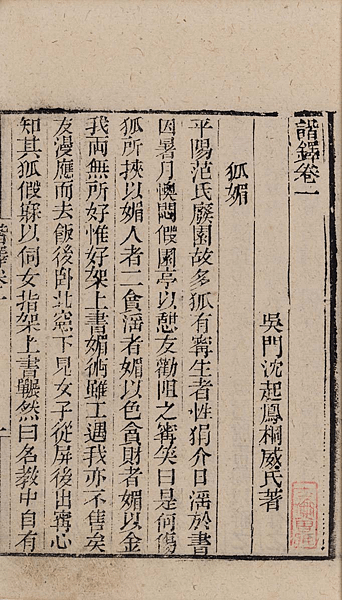 諧鐸卷一
吳門沈起鳳桐威氏著
狐媚
平陽范氏廢園故多狐有甯生者性狷介日淫於書
因暑月懊悶假園亭以憇友勸阻之甯笑曰是何傷
狐所挾以媚人者二貪淫者媚以色貪財者媚以金
我兩無所好惟好架上書媚術雖工遇我亦不售矣
友漫應而去飯後卧北窓下見女子從屏後出甯心
知其狐假寐以伺女指架上書囅然曰名教中自有
諧鐸卷一
一